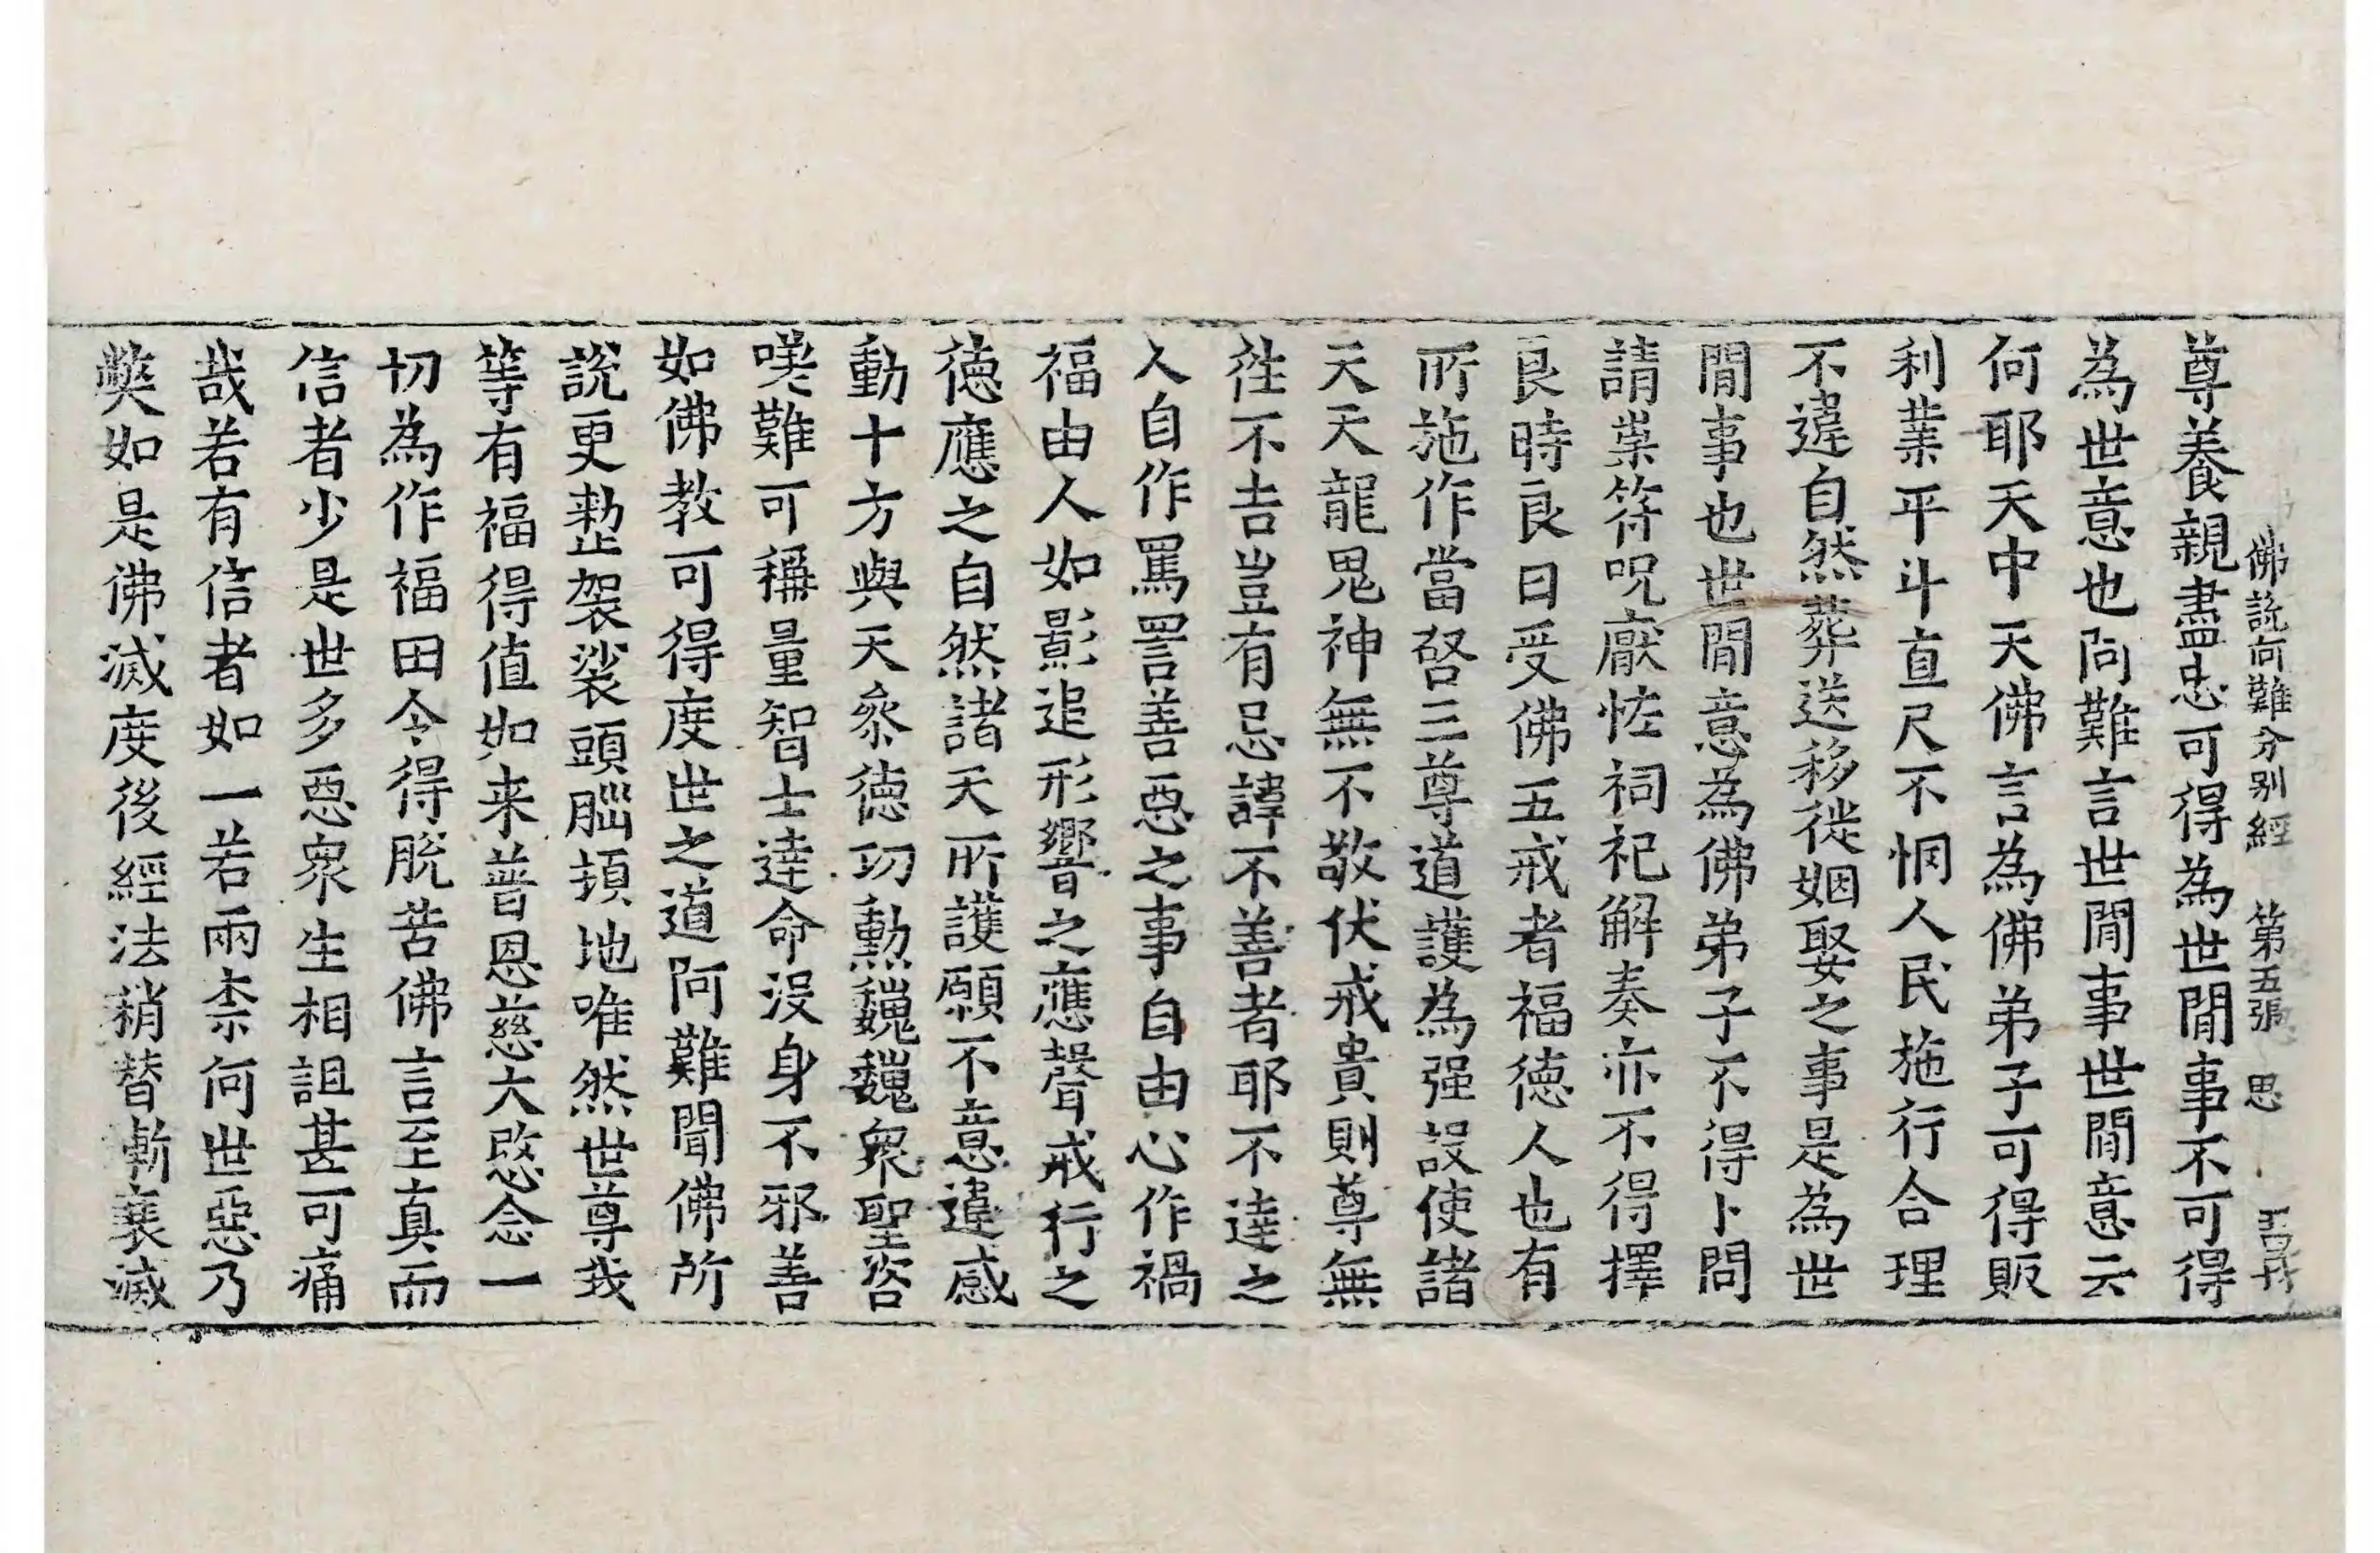 佛說阿難分别經 第五張 思
尊養親盡忠可得為世閒事不可得
為世意也阿難言世閒事世閒意云
何耶天中天佛言為佛弟子可得販
利業平斗直尺不惘人民施行合理
不違自然葬送移徙姻娶之事是為世
閒事也世閒意為佛弟子不得卜問
請祟符呪厭怪祠祀解奏亦不得擇
良時良日受佛五戒者福德人也有
所施作當啓三尊道護為强設使諸
天天龍鬼神無不敬伏戒貴則尊無
徃不吉豈有忌諱不善者耶不達之
人自作罵詈善惡之事自由心作禍
福由人如影追形響之應聲戒行之
德應之自然諸天所護願不意違感
動十方與天叅德功勳巍巍衆聖咨
嘆難可稱量智士達命沒身不邪善
如佛教可得度世之道阿難聞佛所
說更整袈裟頭腦頂地唯然世尊我
等有福得值如来普恩慈大慜念一
切為作福田令得脫苦佛言至真而
信者少是世多惡衆生相詛甚可痛
哉若有信者如一若兩柰何世惡乃
弊如是佛滅度後經法稍替漸衰滅